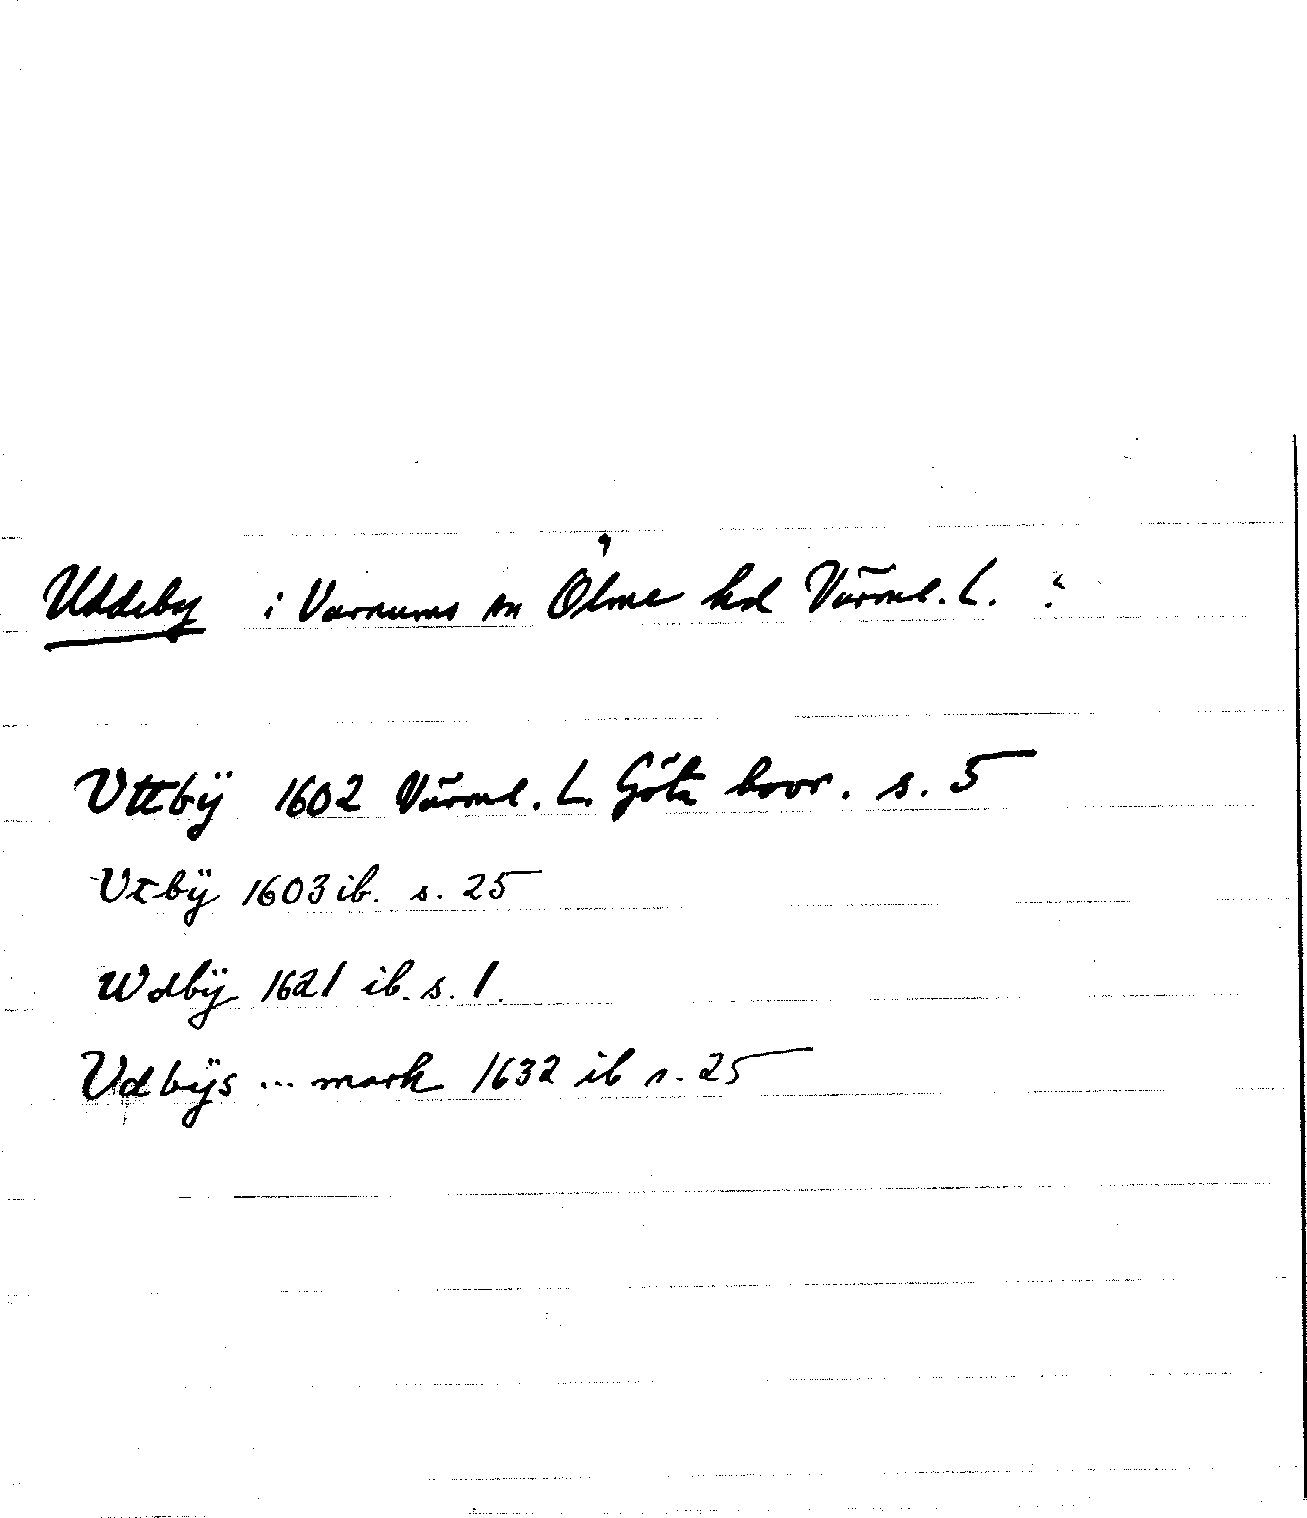 Uddeby i Varnums sn Ölme hd Värml. L. :
Vttbÿ 1602 Värml. L. Göta hovr. s. 5
Vtbÿ 1603 ib. s. 25
Wdbÿ 1621 ib. s. 1.
Vdbÿs ... mark 1632 ib s. 25